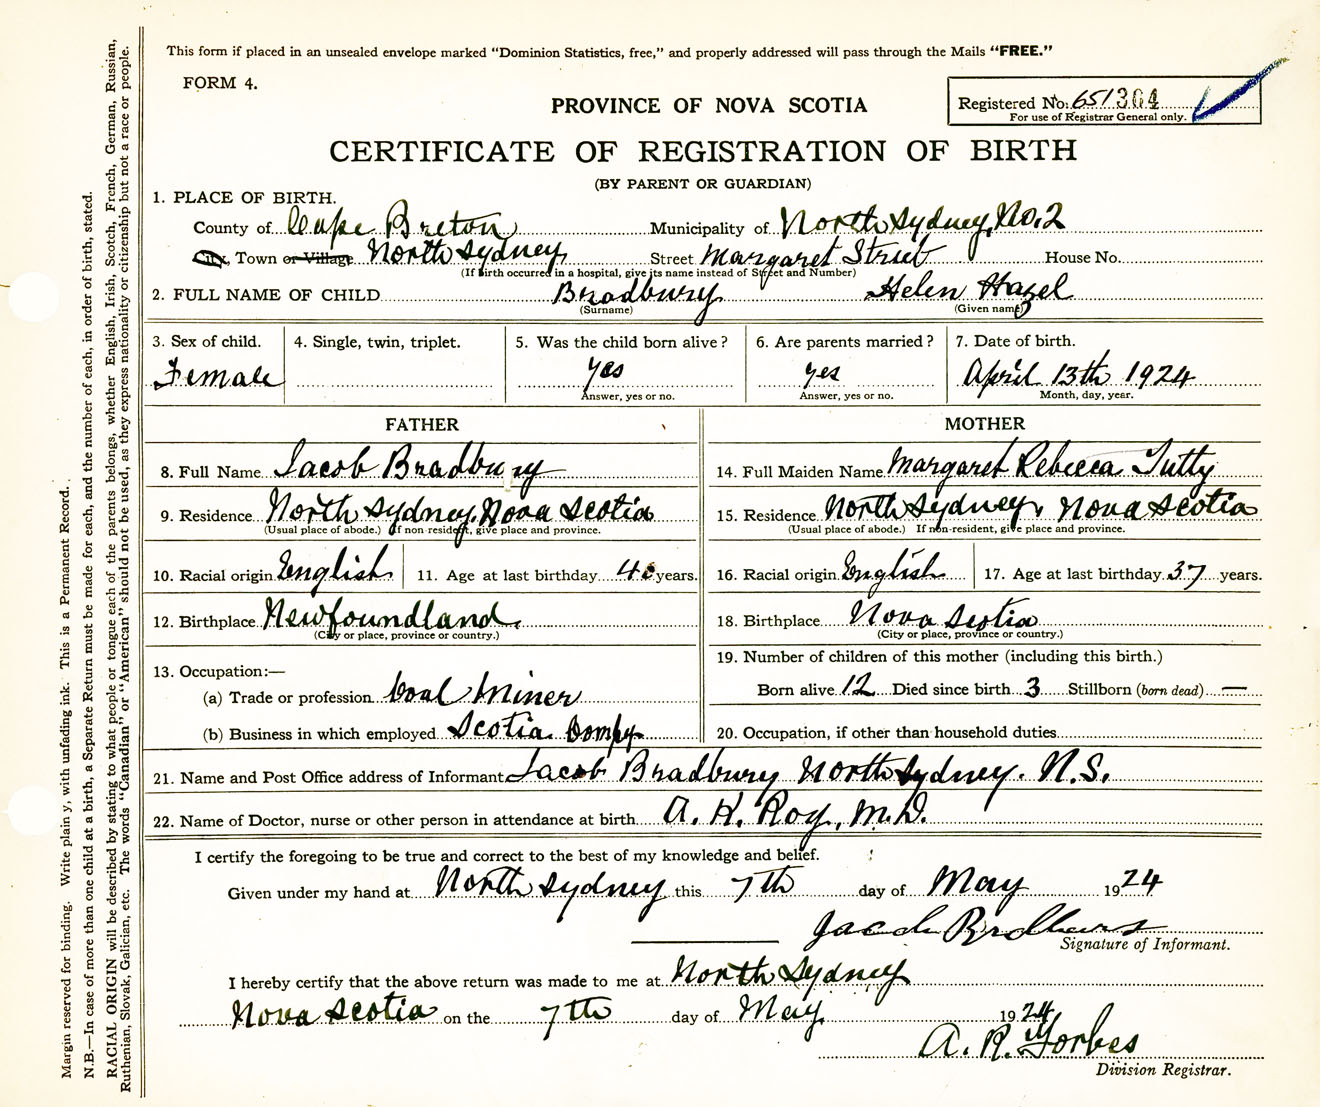 This form if placed in an unsealed envelope marked "Dominion Statistics, free," and properly addressed will pass through the Mails "FREE."
FORM 4.
PROVINCE OF NOVA SCOTIA
Registered No. 651304
For use of Registrar General only.
CERTIFICATE OF REGISTRATION OF BIRTH
(BY PARENT OR GUARDIAN)
1. PLACE OF BIRTH.
County of Cape Breton Municipality of North Sydney, No. 2
City, Town or Village North Sydney Street Margaret Street House No.
(If birth occurred in a hospital, give its name instead of Street and Number)
2. FULL NAME OF CHILD Bradbury Helen Hazel
(Surname) (Given name)
3. Sex of child. 4. Single, twin, triplet. 5. Was the child born alive? 6. Are parents married? 7. Date of birth.
Female yes yes April 13th 1924
Answer, yes or no. Answer, yes or no. Month, day, year.
FATHER MOTHER
8. Full Name Jacob Bradbury 14. Full Maiden Name Margaret Rebecca Tutty
9. Residence North Sydney, Nova Scotia 15. Residence North Sydney, Nova Scotia
(Usual place of abode.) If non-resident, give place and province. (Usual place of abode.) If non-resident, give place and province.
10. Racial origin English 11. Age at last birthday years. 16. Racial origin English 17. Age at last birthday 37 years.
12. Birthplace Newfoundland. 18. Birthplace Nova Scotia
(City or place, province or country.) (City or place, province or country.)
13. Occupation:— 19. Number of children of this mother (including this birth.)
(a) Trade or profession Coal Miner Born alive 12 Died since birth 3 Stillborn (born dead) —
(b) Business in which employed Scotia Compy 20. Occupation, if other than household duties
21. Name and Post Office address of Informant Jacob Bradbury North Sydney. N.S.
22. Name of Doctor, nurse or other person in attendance at birth A. K. Roy, M.D.
I certify the foregoing to be true and correct to the best of my knowledge and belief.
Given under my hand at North Sydney this 7th day of May 1924
Jacob Bradbury
Signature of Informant.
I hereby certify that the above return was made to me at North Sydney
Nova Scotia on the 7th day of May 1924
A. R. Forbes
Division Registrar.
Margin reserved for binding. Write plainly, with unfading ink. This is a Permanent Record.
N.B.—In case of more than one child at a birth, a Separate Return must be made for each, and the number of each, in order of birth, stated.
RACIAL ORIGIN will be described by stating to what people or tongue each of the parents belongs, whether English, Irish, Scotch, French, German, Russian,
Ruthenian, Slovak, Galician, etc. The words "Canadian" or "American" should not be used, as they express nationality or citizenship but not a race or people.